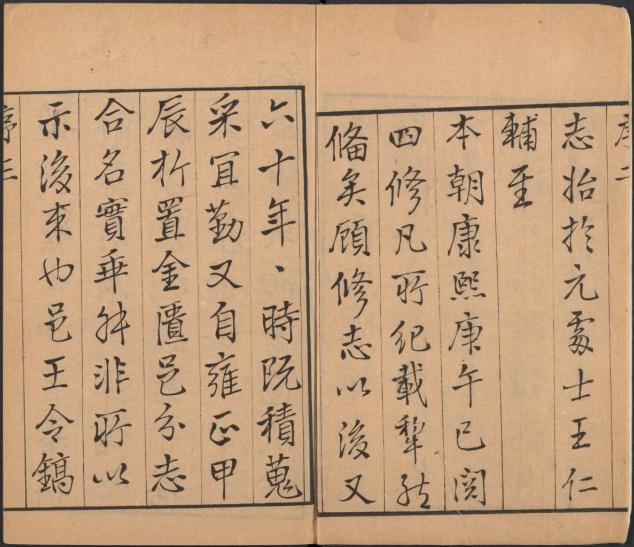 序二
志始扵元處士王仁
輔至
本朝康熙庚午已閱
四修凡所紀載犂然
俻矣顧修志以後又
六十年、時既積蒐
采宜勤又自雍正甲
辰析置金匱邑分志
合名實乖舛非所以
示後来也邑王令鎬
序三